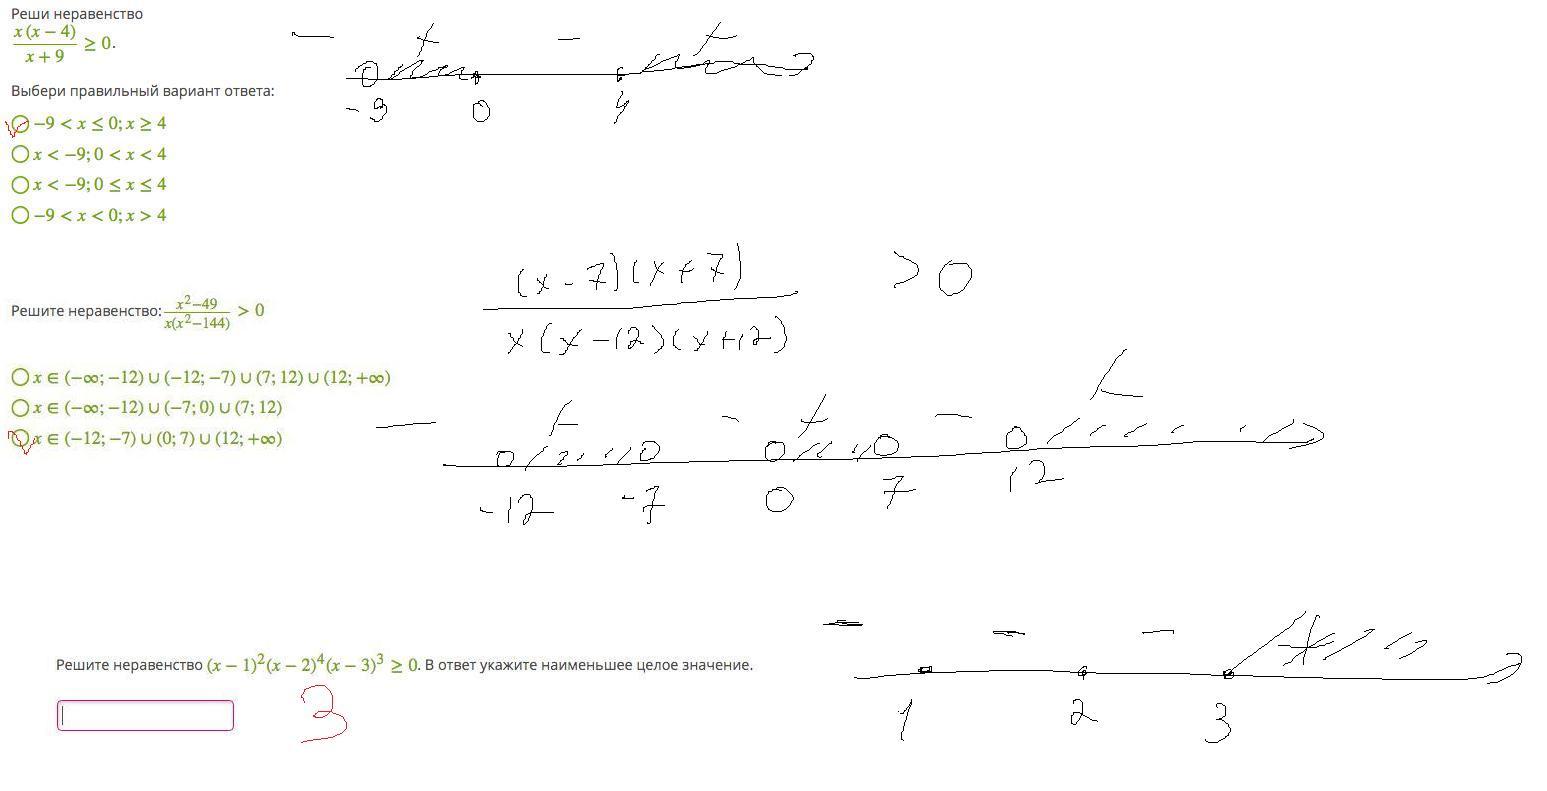 Реши неравенство
x(x − 4)
x + 9
≥ 0.
− + − +
-9 0 4
Выбери правильный вариант ответа:
−9 < x ≤ 0; x ≥ 4
x < −9; 0 < x < 4
x < −9; 0 ≤ x ≤ 4
−9 < x < 0; x > 4
(x - 7)(x + 7)
x(x - 12)(x + 12)
> 0
Решите неравенство: x²−49
x(x²−144)
> 0
x ∈ (−∞; −12) ∪ (−12; −7) ∪ (7; 12) ∪ (12; +∞)
x ∈ (−∞; −12) ∪ (−7; 0) ∪ (7; 12)
x ∈ (−12; −7) ∪ (0; 7) ∪ (12; +∞)
− + − + − +
-12 -7 0 7 12
− − − +
Решите неравенство (x − 1)²(x − 2)⁴(x − 3)³ ≥ 0. В ответ укажите наименьшее целое значение.
3
1 2 3